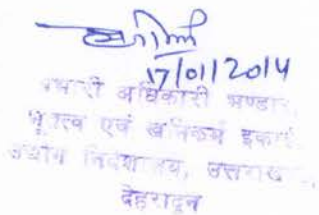 17/01/2014
प्रभारी अधिकारी भण्डार,
भूतत्व एवं खनिकर्म इकाई,
उद्योग निदेशालय, उत्तराखण्ड,
देहरादून